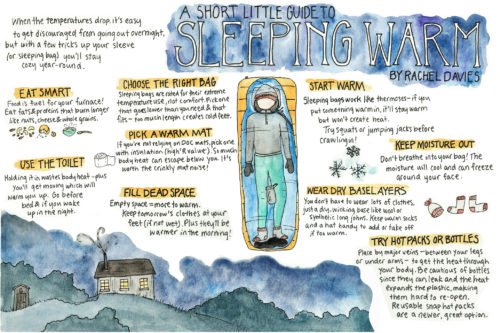 A SHORT LITTLE GUIDE TO
SLEEPING WARM
BY RACHEL DAVIES
When the temperatures drop, it's easy
to get discouraged from going out overnight,
but with a few tricks up your sleeve
(or sleeping bag) you'll stay
cozy year-round.
EAT SMART
Food is fuel for your furnace!
Eat fats & proteins that burn longer
like nuts, cheese & whole grains.
USE THE TOILET
Holding it in wastes body heat - plus
you'll get moving which will
warm you up. Go before
bed & if you wake
up in the night.
CHOOSE THE RIGHT BAG
Sleeping bags are rated for their extreme
temperature use, not comfort. Pick one
that goes lower than you need & that
fits - too much length creates cold feet.
PICK A WARM MAT
If you're not relying on DOC mats, pick one
with insulation (high 'R value'). So much
body heat can escape below you. It's
worth the crinkly mat noise!
FILL DEAD SPACE
Empty space = more to warm.
Keep tomorrow's clothes at your
feet (if not wet). Plus they'll be
warmer in the morning!
START WARM
Sleeping bags work like thermoses - if you
put something warm in, it'll stay warm
but won't create heat.
Try squats or jumping jacks before
crawling in!
KEEP MOISTURE OUT
Don't breathe into your bag! The
moisture will cool and can freeze
around your face.
WEAR DRY BASELAYERS
You don't have to wear lots of clothes,
just a dry, wicking base like wool or
synthetic long johns. Keep warm socks
and a hat handy to add or take off
if too warm.
TRY HOT PACKS OR BOTTLES
Place by major veins - between your legs
or under arms - to get the heat through
your body. Be cautious of bottles
since they can leak and the heat
expands the plastic, making
them hard to re-open.
Reusable snap hot packs
are a newer, great option.